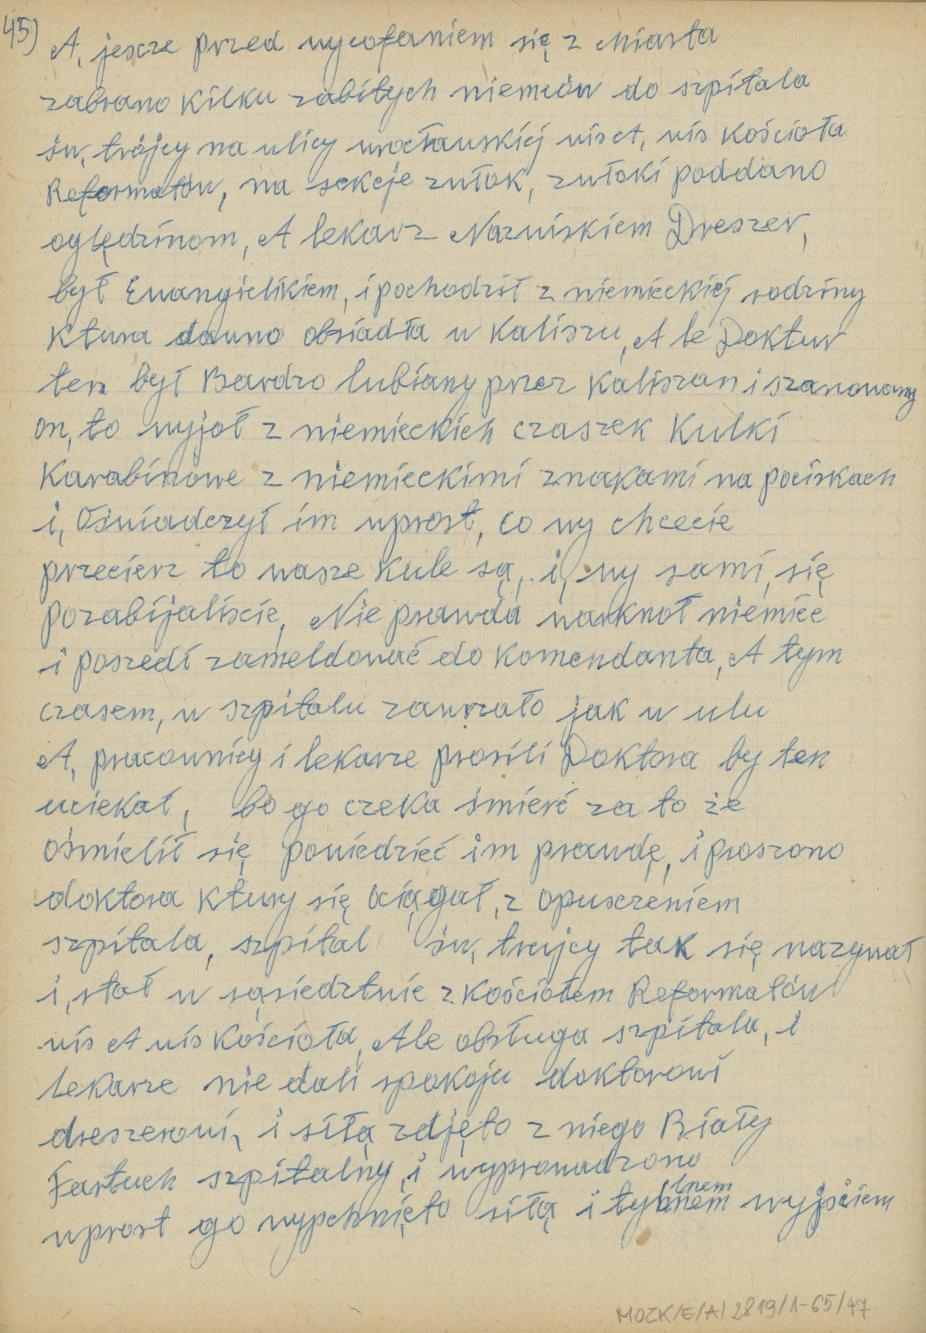 45)
A, jescze przed wycofaniem się z Miasta
zabrano Kilku zabitych niemców do szpitala
św, trójcy na ulicy wrocławskiej wis et, wis Kościoła
Reformatów, na sekcje zwłok, zwłoki poddano
oględzinom, A lekarz Nazwiskiem Dreszer,
był Ewangielikiem, i pochodził z niemieckiej rodziny
Ktura dawno obsiadła w Kaliszu, A le Doktur
ten był Bardzo lubiany przez Kaliszan i szanowany
on, to wyjoł z niemieckich czaszek Kulki
Karabinowe z niemieckimi znakami na pociskach
i, Oświadczył im wprost, co wy chcecie
przecierz to wasze Kule są, i, wy sami, się
pozabijaliście, Nie prawda warknoł niemiec
i poszedł zameldować do Komendanta, A tym
czasem, w szpitalu zawrzało jak w ulu
A, pracownicy i lekarze prosili Doktora by ten
uciekał, bo go czeka śmierć za to że
ośmielił się powiedzieć im prawdę, i proszono
doktora Ktury się ociągał, z opuszczeniem
szpitala, szpital św, trujcy tak się nazywał
i, stał w sąsiedztwie z Kościołem Reformatów
wis A wis Kościoła, Ale obsługa szpitala, i
lekarze nie dali spokoju doktorowi
dreszerowi, i siłą zdjęto z niego Biały
Fartuch szpitalny, i wyprowadzono
wprost go wypchnięto siłą i tylnem wyjściem
MOZK/E/A/2819/1-65/47